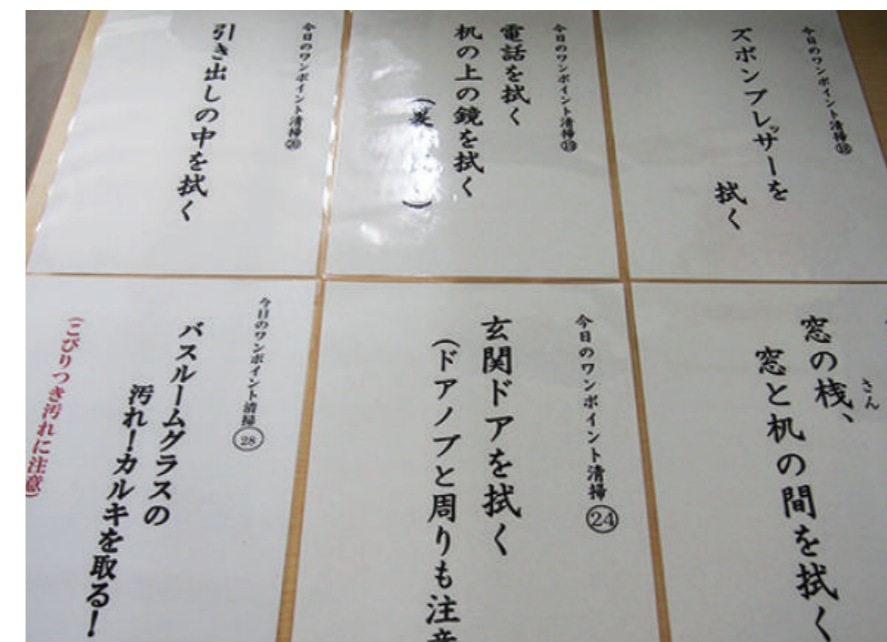 今日のワンポイント清掃⑱
ズボンプレッサーを
拭く
今日のワンポイント清掃⑲
電話を拭く
机の上の鏡を拭く
今日のワンポイント清掃⑳
引き出しの中を拭く
さん
窓の桟、
窓と机の間を拭く
今日のワンポイント清掃㉔
玄関ドアを拭く
(ドアノブと周りも注意
今日のワンポイント清掃㉘
バスルームグラスの
汚れ!カルキを取る!
(こびりつき汚れに注意)